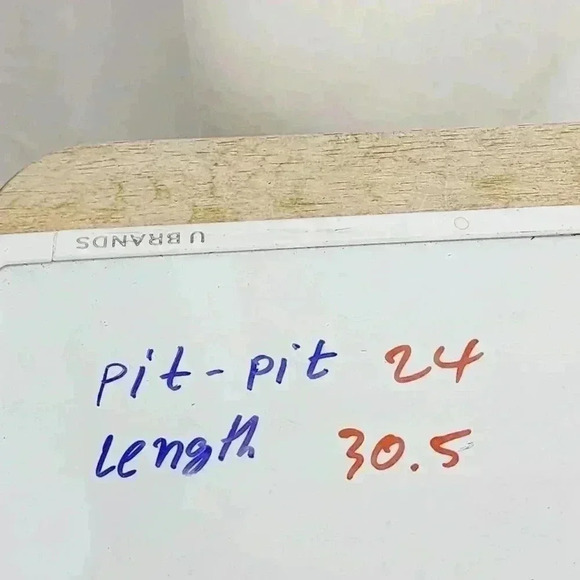 U BRANDS
pit-pit 24
Length 30.5